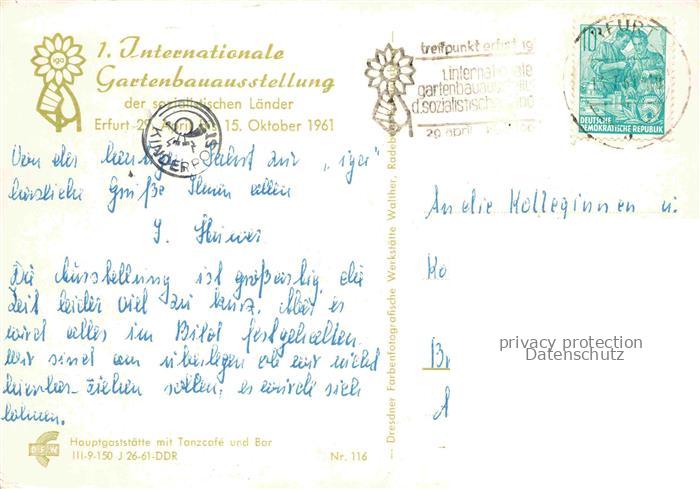 iga
1. Internationale
Gartenbauausstellung
der sozialistischen Länder
Erfurt 29. April 15. Oktober 1961
KINDERPOST
treffpunkt erfurt 19
1. internationale
gartenbauausstellg
d. sozialistisch
29 april
ERFURT
10
5
DEUTSCHE
DEMOKRATISCHE REPUBLIK
Von der Fahrt zur „iga"
herzliche Grüße Ihnen allen
J.
Die Ausstellung ist großartig, die
Zeit leider viel zu kurz. Aber es
wird alles im Bild festgehalten.
Wir sind am überlegen ob wir nicht
hierher ziehen sollen, es würde sich
lohnen.
An die Kolleginnen u.
Ko
Br
A
privacy protection
Datenschutz
Dresdner Farbenfotografische Werkstätte Walther, Radebe
DFW
Hauptgaststätte mit Tanzcafé und Bar
III-9-150 J 26-61-DDR
Nr. 116